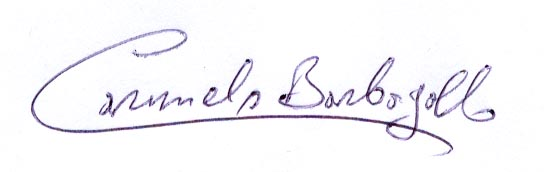 Carmelo Barbagallo